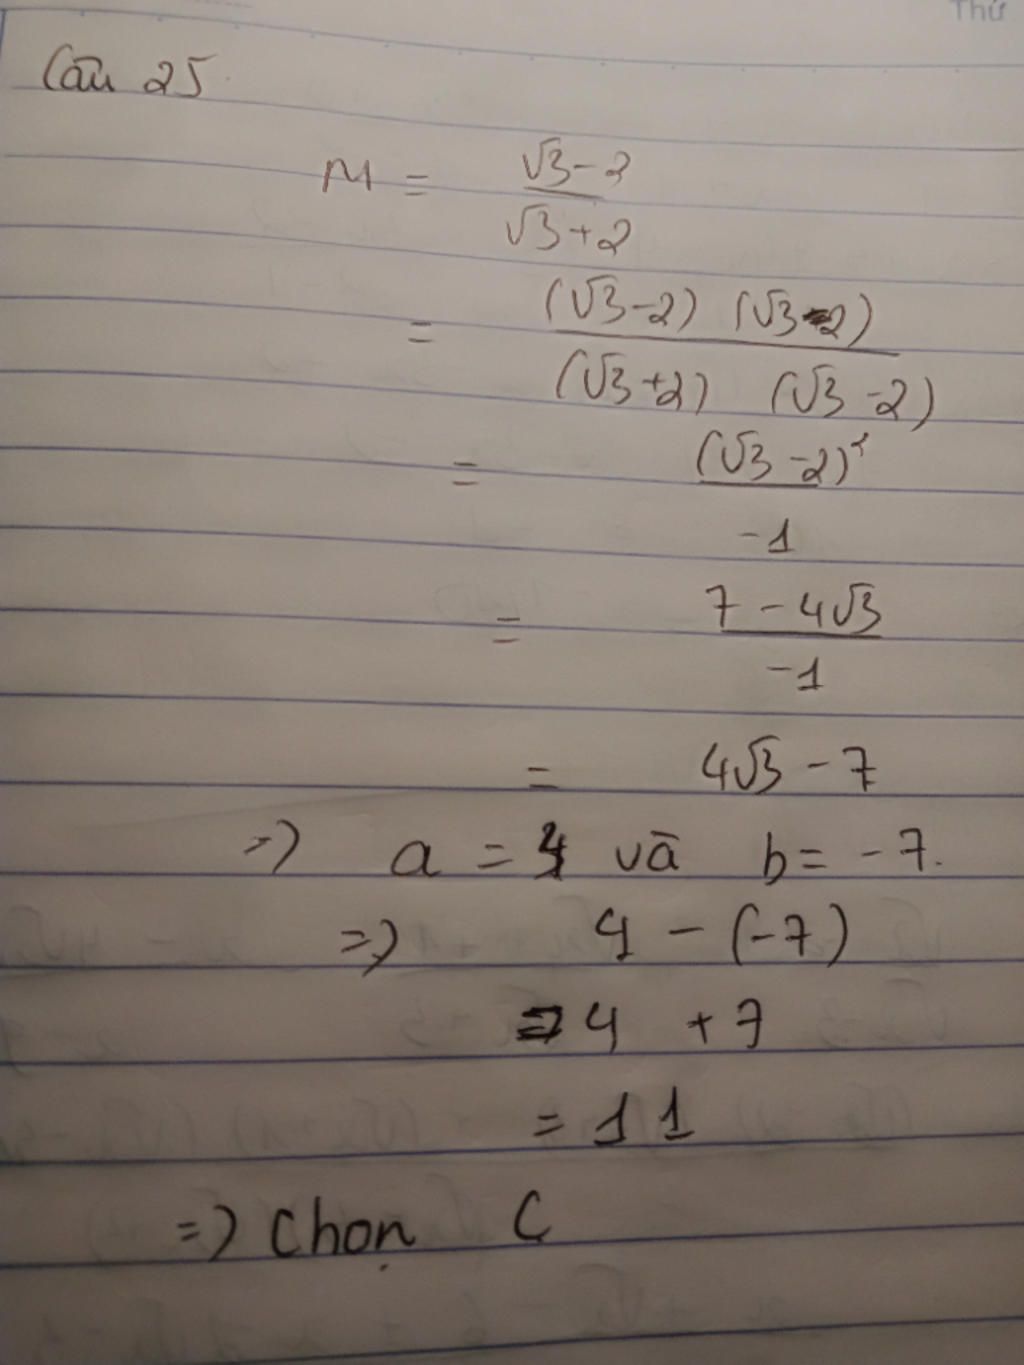 Thứ
Câu 25
M = \frac{\sqrt{3} - 2}{\sqrt{3} + 2}
= \frac{(\sqrt{3} - 2) (\sqrt{3} - 2)}{(\sqrt{3} + 2) (\sqrt{3} - 2)}
= \frac{(\sqrt{3} - 2)^2}{-1}
= \frac{7 - 4\sqrt{3}}{-1}
= 4\sqrt{3} - 7
=) a = 4 và b = -7.
=) 4 - (-7)
= 4 + 7
= 11
=) Chọn C